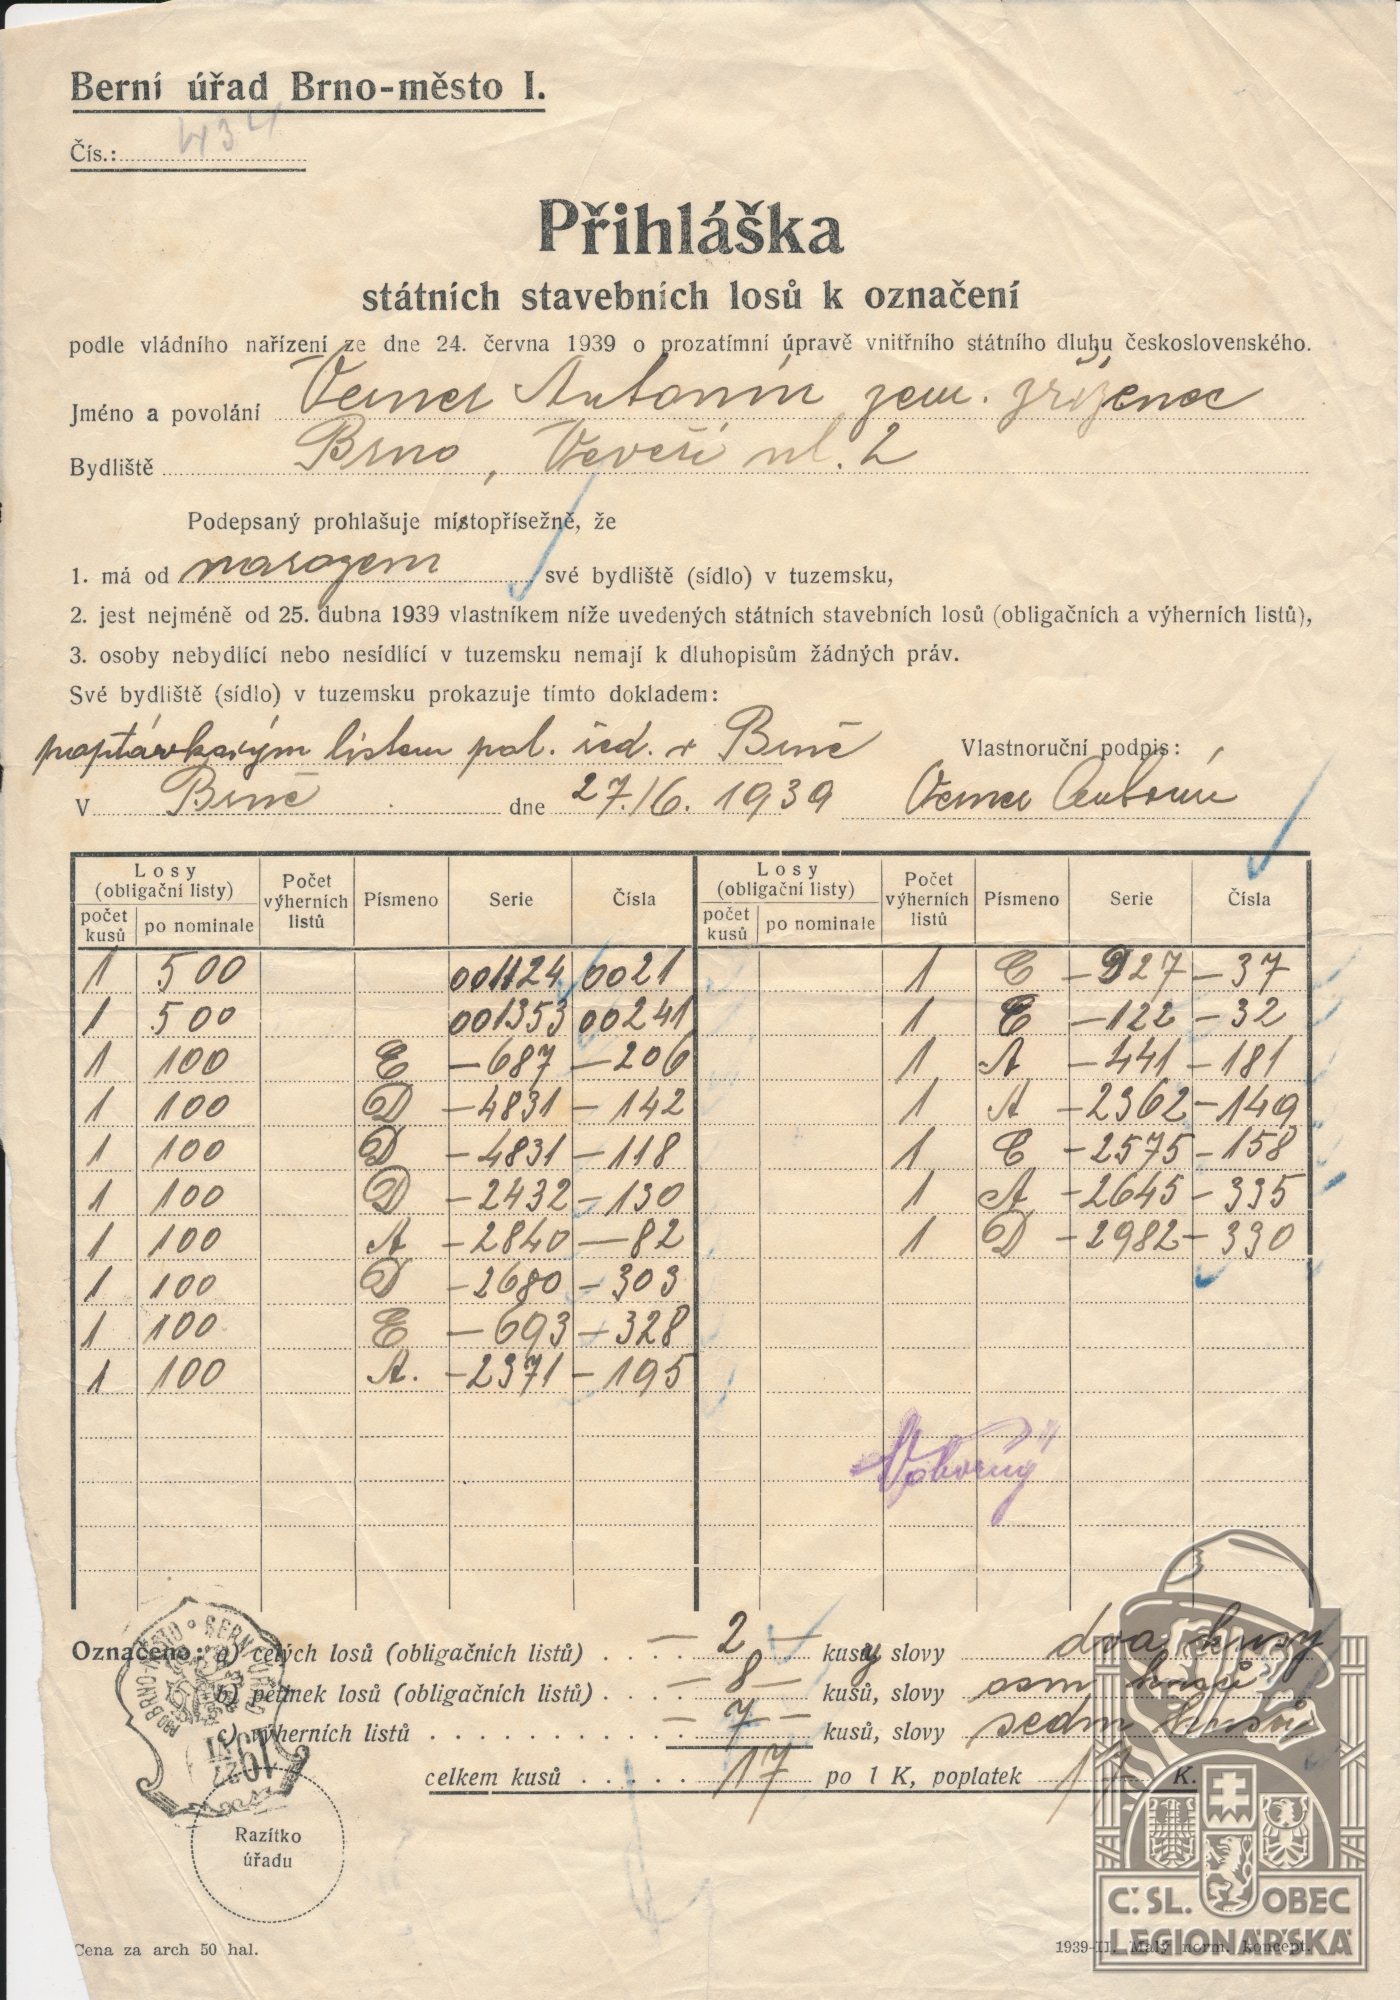 Berní úřad Brno-město I.
Čís.: 434
Přihláška
státních stavebních losů k označení
podle vládního nařízení ze dne 24. června 1939 o prozatímní úpravě vnitřního státního dluhu československého.
Jméno a povolání Verner Antonín zem. zřízenec
Bydliště Brno, Veveří ul. 2
Podepsaný prohlašuje místopřísežně, že
1. má od narozem své bydliště (sídlo) v tuzemsku,
2. jest nejméně od 25. dubna 1939 vlastníkem níže uvedených státních stavebních losů (obligačních a výherních listů),
3. osoby nebydlící nebo nesídlící v tuzemsku nemají k dluhopisům žádných práv.
Své bydliště (sídlo) v tuzemsku prokazuje tímto dokladem:
listem pol. řed. v Brně Vlastnoruční podpis:
V Brně dne 27./6. 1939 Verner Antonín
Losy (obligační listy) počet kusů po nominale Počet výherních listů Písmeno Serie Čísla Losy (obligační listy) počet kusů po nominale Počet výherních listů Písmeno Serie Čísla
1 500 001124 0021 1 C – 927 – 37
1 500 001353 00241 1 C – 122 – 32
1 100 E – 687 – 206 1 A – 441 – 181
1 100 D – 4831 – 142 1 A – 2362 – 149
1 100 D – 4831 – 118 1 C – 2575 – 158
1 100 D – 2432 – 130 1 A – 2645 – 335
1 100 A – 2840 – 82 1 D – 2982 – 330
1 100 D – 2680 – 303
1 100 E – 693 – 328
1 100 A. – 2371 – 195
Označeno: a) celých losů (obligačních listů) . . . . – 2 – kusy, slovy dva kusy
b) pětinek losů (obligačních listů) . . . – 8 – kusů, slovy osm kusů
c) výherních listů . . . . . . . . . . – 7 – kusů, slovy sedm kusů
celkem kusů . . . . . 17 po 1 K, poplatek 17 K.
Razítko
úřadu
Cena za arch 50 hal.
1939-II. Malý norm. koncept.
Č. SL. OBEC
LEGIONÁŘSKÁ